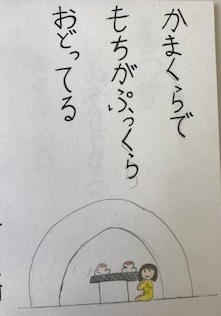 かまくらで
もちがぷっくら
おどってる